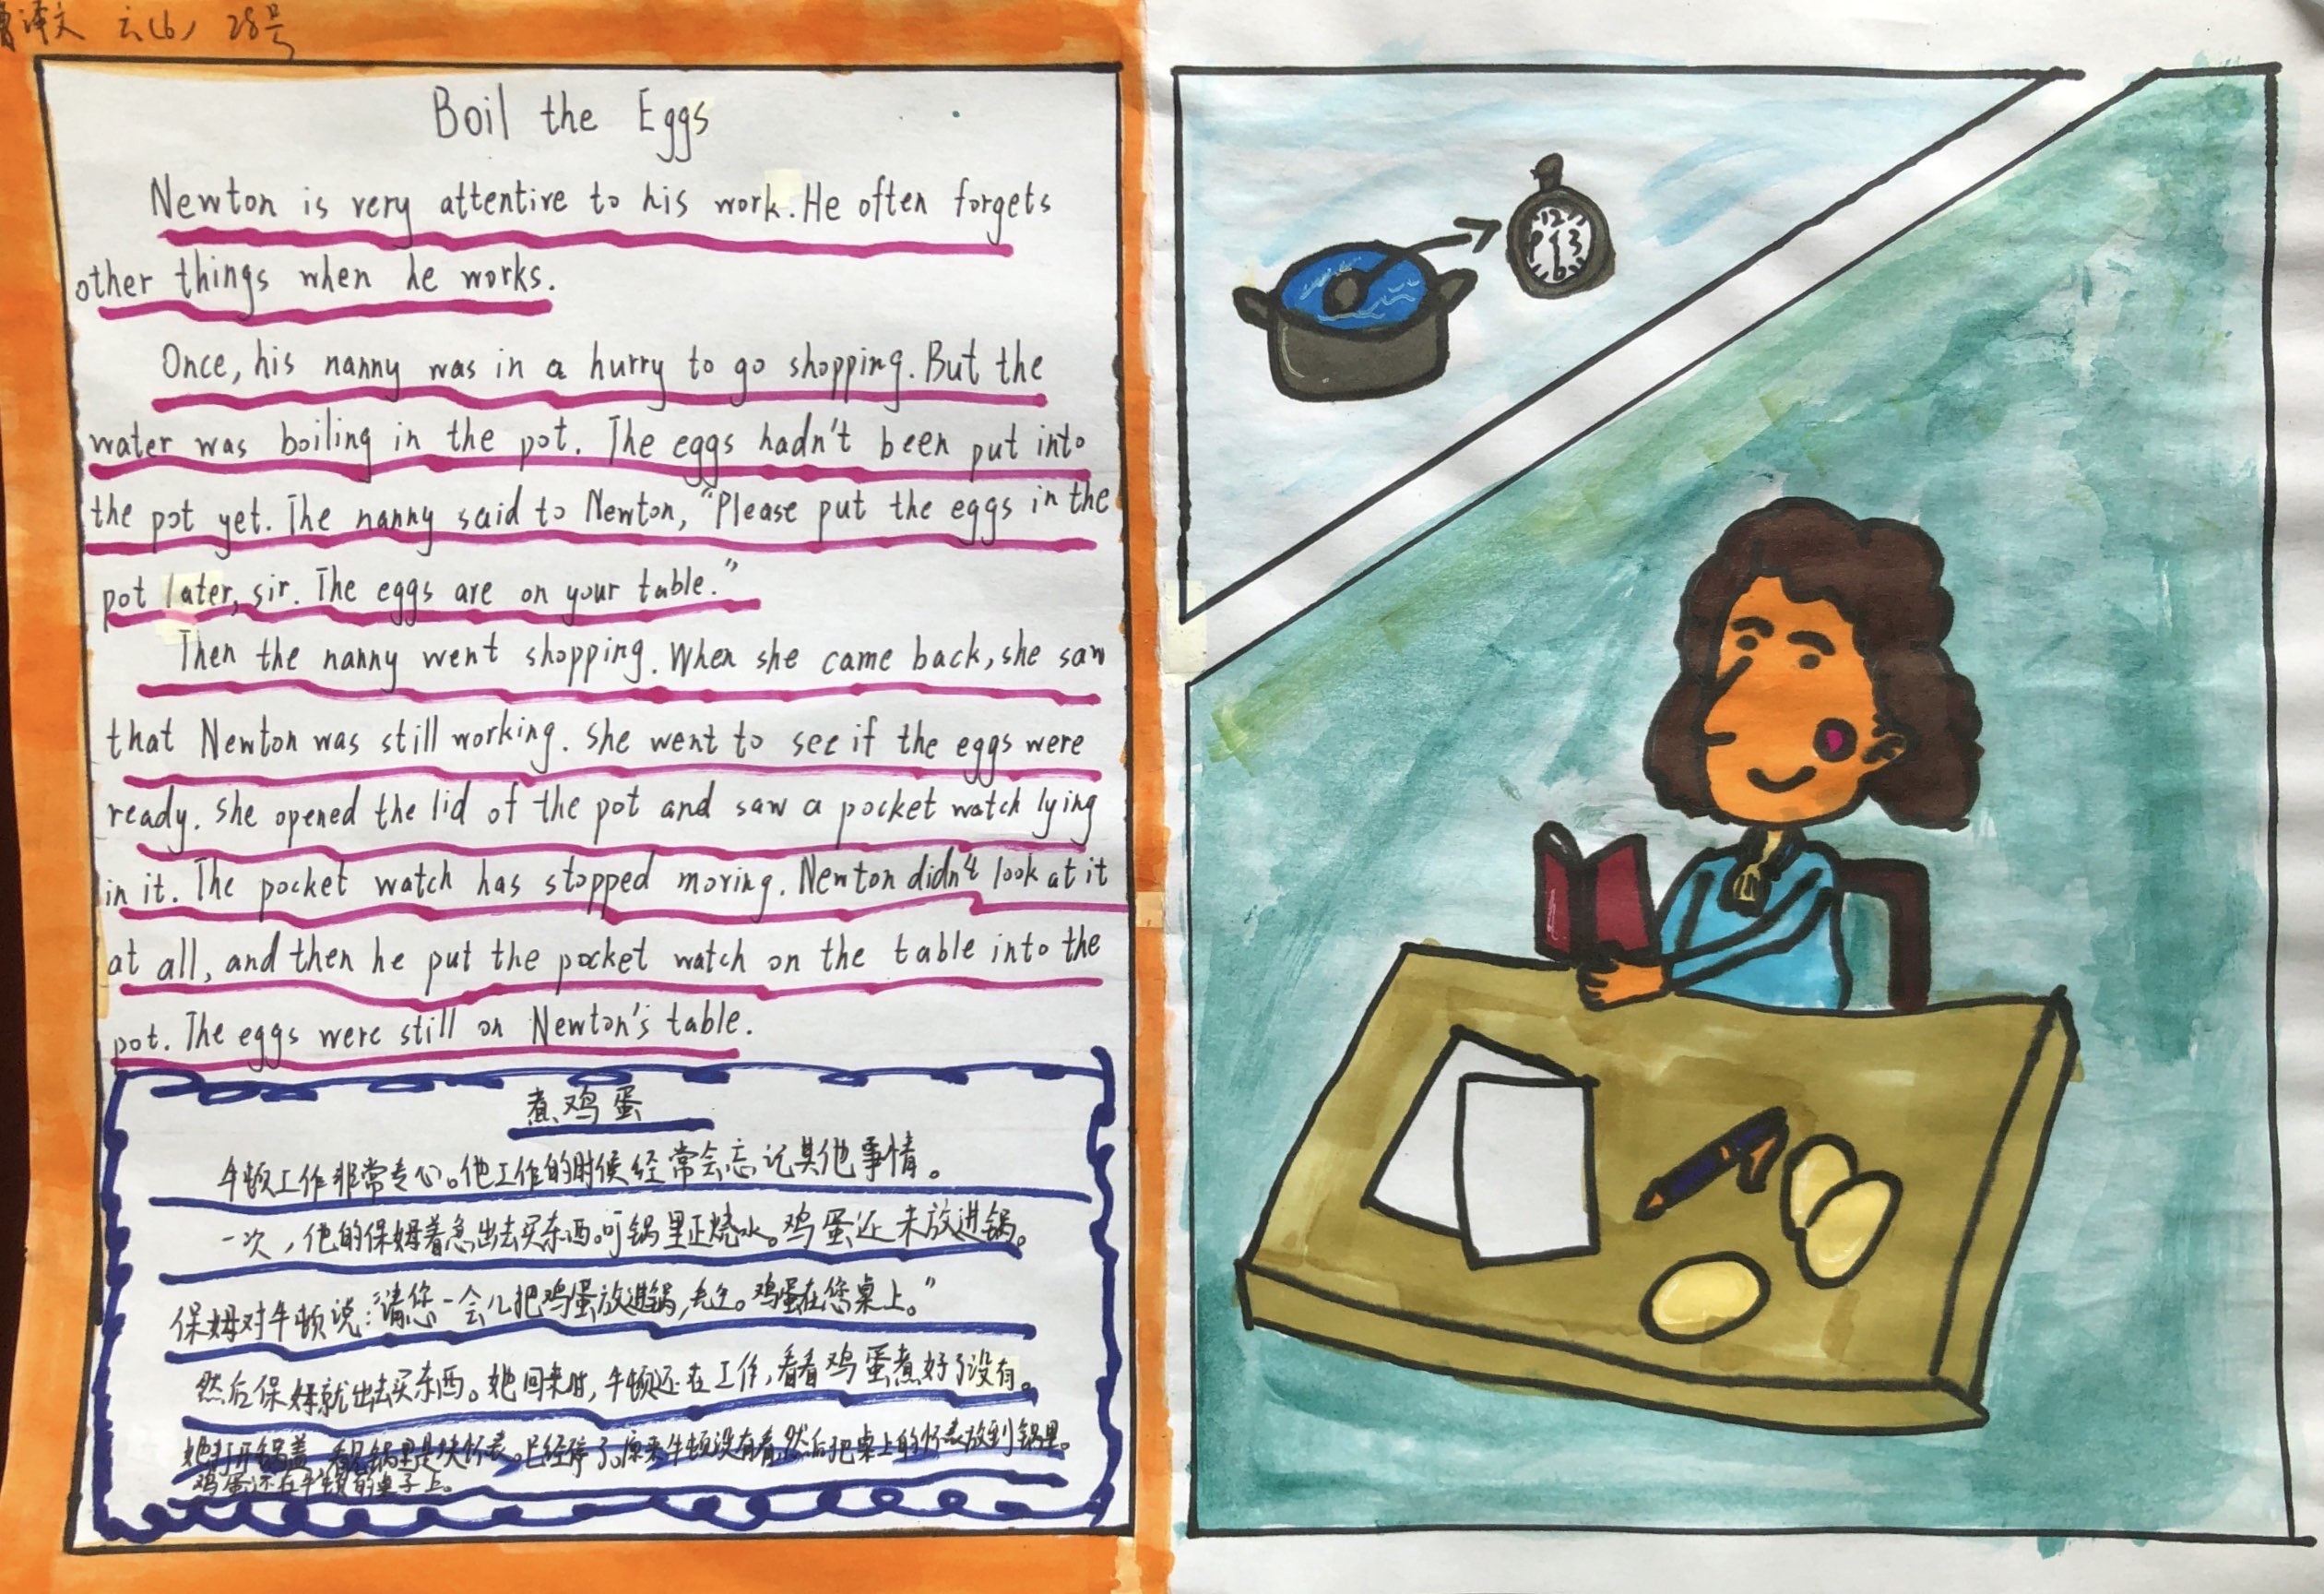 曹译文 六(6) 28号
Boil the Eggs
Newton is very attentive to his work. He often forgets
other things when he works.
Once, his nanny was in a hurry to go shopping. But the
water was boiling in the pot. The eggs hadn't been put into
the pot yet. The nanny said to Newton, "Please put the eggs in the
pot later, sir. The eggs are on your table."
Then the nanny went shopping. When she came back, she saw
that Newton was still working. She went to see if the eggs were
ready. She opened the lid of the pot and saw a pocket watch lying
in it. The pocket watch has stopped moving. Newton didn't look at it
at all, and then he put the pocket watch on the table into the
pot. The eggs were still on Newton's table.
煮鸡蛋
牛顿工作非常专心。他工作的时候经常会忘记其他事情。
一次，他的保姆着急出去买东西。可锅里正烧水。鸡蛋还未放进锅。
保姆对牛顿说：“请您一会儿把鸡蛋放进锅，先生。鸡蛋在您桌上。”
然后保姆就出去买东西。她回来时，牛顿还在工作，看看鸡蛋煮好了没有。
她打开锅盖，看见锅里是块怀表。已经停了。原来牛顿没有看，然后把桌上的怀表放到锅里。
鸡蛋还在牛顿的桌子上。
12
3
6
9